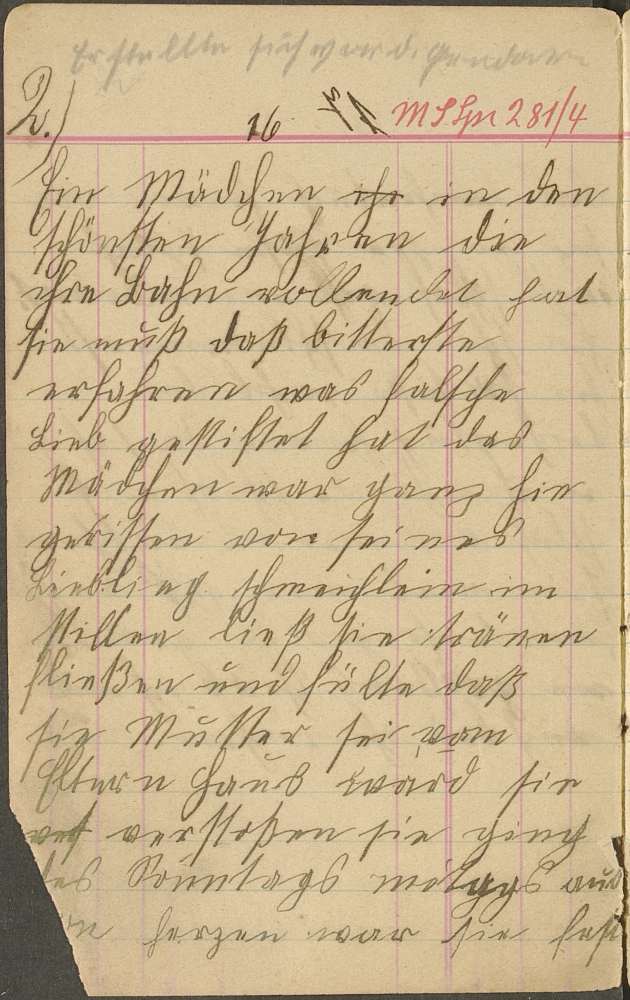 Er stellte sich vor d. Gendarm
2.) 16 M S Lpr 281/4
Ein Mädchen ihr in den
schönsten Jahren die
ihre Bahn vollendet hat
sie muß daß bitterste
erfahren was falsche
Lieb gestiftet hat das
Mädchen war ganz hin
gerissen von seines
Liebling schmeichlein im
stillen ließ sie tränen
fließen und fülte daß
sie Mutter sei vom
Eltern Haus ward sie
verstoßen sie ging
des Sonntags mötags aus
herzen war sie fest